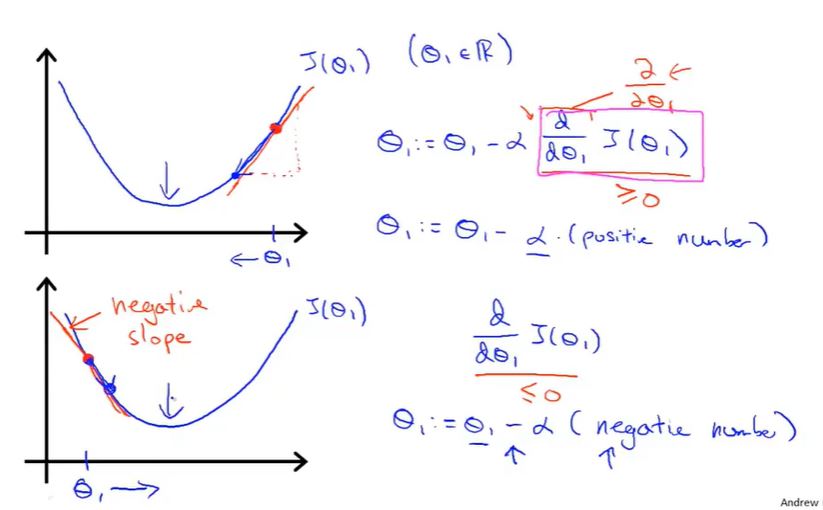 J(θ₁) (θ₁ ∈ ℝ)
∂/∂θ₁ ←
θ₁ := θ₁ - α d/dθ₁ J(θ₁)
≥ 0
θ₁ := θ₁ - α · (positive number)
← θ₁
negative slope
J(θ₁)
d/dθ₁ J(θ₁)
≤ 0
θ₁ := θ₁ - α (negative number)
θ₁ →
Andrew